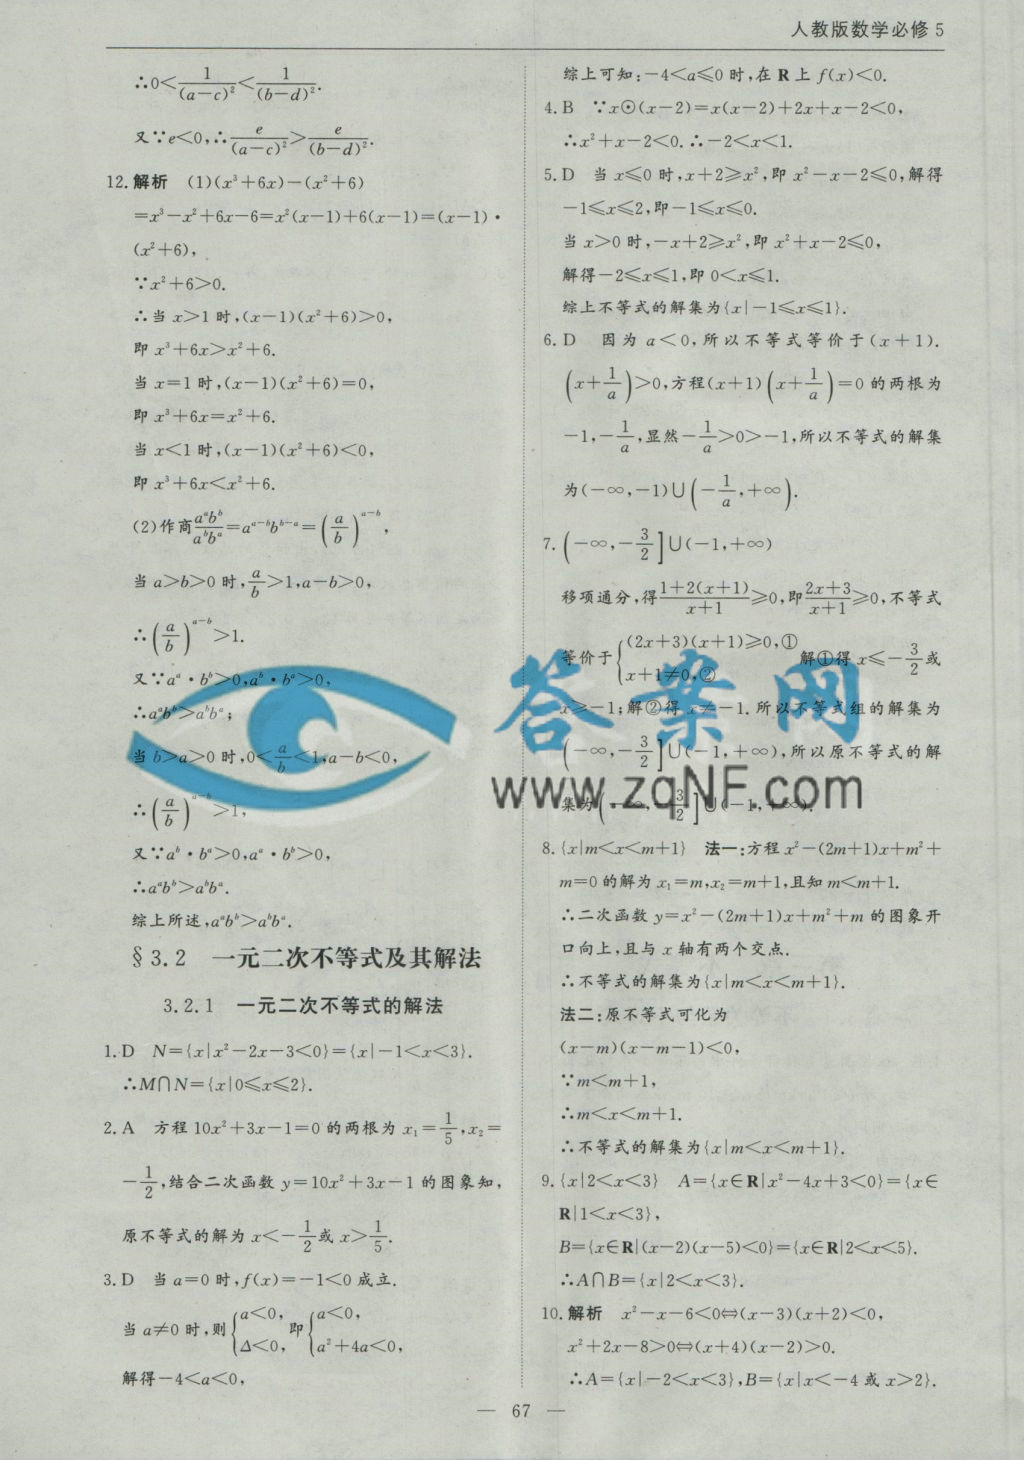 人教版数学必修 5
∴0<1/(a-c)²<1/(b-d)².
又∵e<0,∴e/(a-c)²>e/(b-d)².
12.解析 (1)(x³+6x)-(x²+6)
=x³-x²+6x-6=x²(x-1)+6(x-1)=(x-1)·
(x²+6),
∵x²+6>0.
∴当 x>1 时,(x-1)(x²+6)>0,
即 x³+6x>x²+6.
当 x=1 时,(x-1)(x²+6)=0,
即 x³+6x=x²+6.
当 x<1 时,(x-1)(x²+6)<0,
即 x³+6x<x²+6.
(2)作商 a^a b^b/(a^b b^a)=a^(a-b) b^(b-a)=(a/b)^(a-b),
当 a>b>0 时,a/b>1,a-b>0,
∴(a/b)^(a-b)>1.
又∵a^a·b^b>0,a^b·b^a>0,
∴a^a b^b>a^b b^a;
当 b>a>0 时,0<a/b<1,a-b<0,
∴(a/b)^(a-b)>1,
又∵a^b·b^a>0,a^a·b^b>0,
∴a^a b^b>a^b b^a.
综上所述,a^a b^b>a^b b^a.
§3.2 一元二次不等式及其解法
3.2.1 一元二次不等式的解法
1.D N={x|x²-2x-3<0}={x|-1<x<3}.
∴M∩N={x|0⩽x⩽2}.
2.A 方程 10x²+3x-1=0 的两根为 x₁=1/5,x₂=
-1/2,结合二次函数 y=10x²+3x-1 的图象知,
原不等式的解为 x<-1/2或 x>1/5.
3.D 当 a=0 时,f(x)=-1<0 成立.
当 a≠0 时,则{a<0, Δ<0, 即{a<0, a²+4a<0,
解得-4<a<0,
综上可知:-4<a⩽0 时,在 R 上 f(x)<0.
4.B ∵x⊙(x-2)=x(x-2)+2x+x-2<0,
∴x²+x-2<0.∴-2<x<1.
5.D 当 x⩽0 时,x+2⩾x²,即 x²-x-2⩽0,解得
-1⩽x⩽2,即-1⩽x⩽0.
当 x>0 时,-x+2⩾x²,即 x²+x-2⩽0,
解得-2⩽x⩽1,即 0<x⩽1.
综上不等式的解集为{x|-1⩽x⩽1}.
6.D 因为 a<0,所以不等式等价于(x+1).
(x+1/a)>0,方程(x+1)(x+1/a)=0 的两根为
-1,-1/a,显然-1/a>0>-1,所以不等式的解集
为(-∞,-1)∪(-1/a,+∞).
7.(-∞,-3/2]∪(-1,+∞)
移项通分,得(1+2(x+1))/(x+1)⩾0,即(2x+3)/(x+1)⩾0,不等式
等价于{(2x+3)(x+1)⩾0,① x+1≠0,② 解①得 x⩽-3/2或
x⩾-1;解②得 x≠-1.所以不等式组的解集为
(-∞,-3/2]∪(-1,+∞),所以原不等式的解
集为(-∞,-3/2]∪(-1,+∞).
8.{x|m<x<m+1} 法一:方程 x²-(2m+1)x+m²+
m=0 的解为 x₁=m,x₂=m+1,且知 m<m+1.
∴二次函数 y=x²-(2m+1)x+m²+m 的图象开
口向上,且与 x 轴有两个交点.
∴不等式的解集为{x|m<x<m+1}.
法二:原不等式可化为
(x-m)(x-m-1)<0,
∵m<m+1,
∴m<x<m+1.
∴不等式的解集为{x|m<x<m+1}.
9.{x|2<x<3} A={x∈R|x²-4x+3<0}={x∈
R|1<x<3},
B={x∈R|(x-2)(x-5)<0}={x∈R|2<x<5}.
∴A∩B={x|2<x<3}.
10.解析 x²-x-6<0⇔(x-3)(x+2)<0,
x²+2x-8>0⇔(x+4)(x-2)>0.
∴A={x|-2<x<3},B={x|x<-4 或 x>2}.
答案网
www.zqNF.com
— 67 —